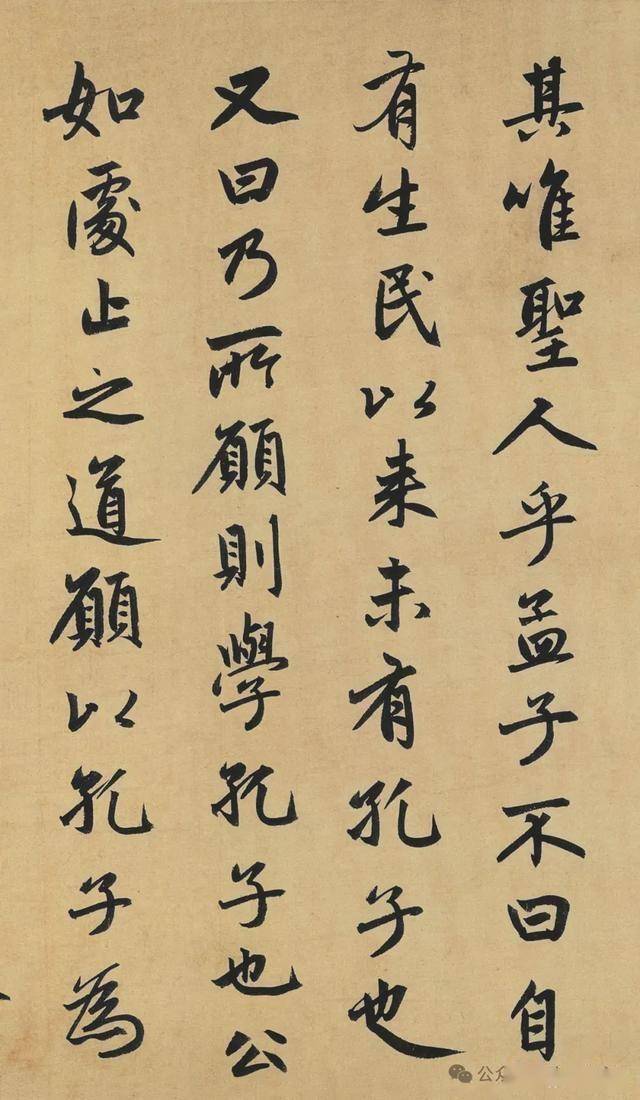 其唯聖人乎孟子不曰自
有生民以来未有孔子也
又曰乃所願則學孔子也公
如處止之道願以孔子為
公众